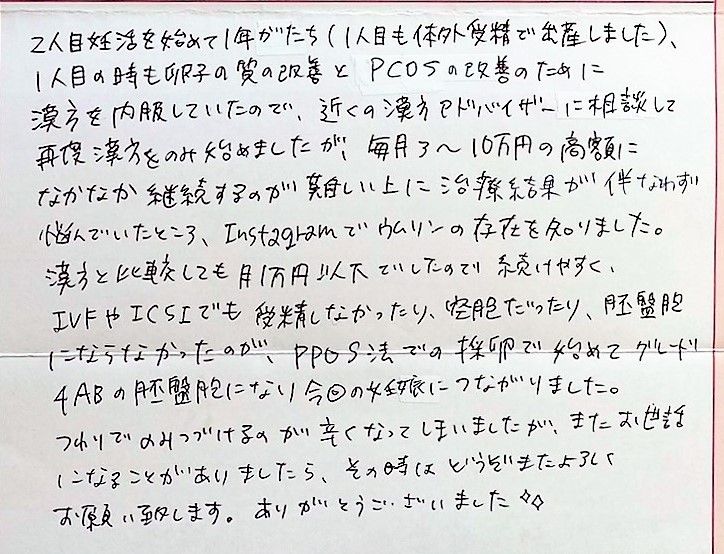 2人目妊活を始めて1年がたち(1人目も体外受精で出産しました)、
1人目の時も卵子の質の改善とPCOSの改善のために
漢方を内服していたので、近くの漢方アドバイザーに相談して
再度漢方をのみ始めましたが、毎月3〜10万円の高額に
なかなか継続するのが難しい上に治療結果が伴なわず
悩んでいたところ、Instagramでウムリンの存在を知りました。
漢方と比較しても月1万円以下でしたので続けやすく、
IVFやICSIでも受精しなかったり、空胞だったり、胚盤胞
にならなかったのが、PPOS法での採卵で始めてグレード
4ABの胚盤胞になり今回の妊娠につながりました。
つわりでのみつづけるのが辛くなってしまいましたが、またお世話
になることがありましたら、その時はどうぞまたよろしく
お願い致します。ありがとうございました✧✧